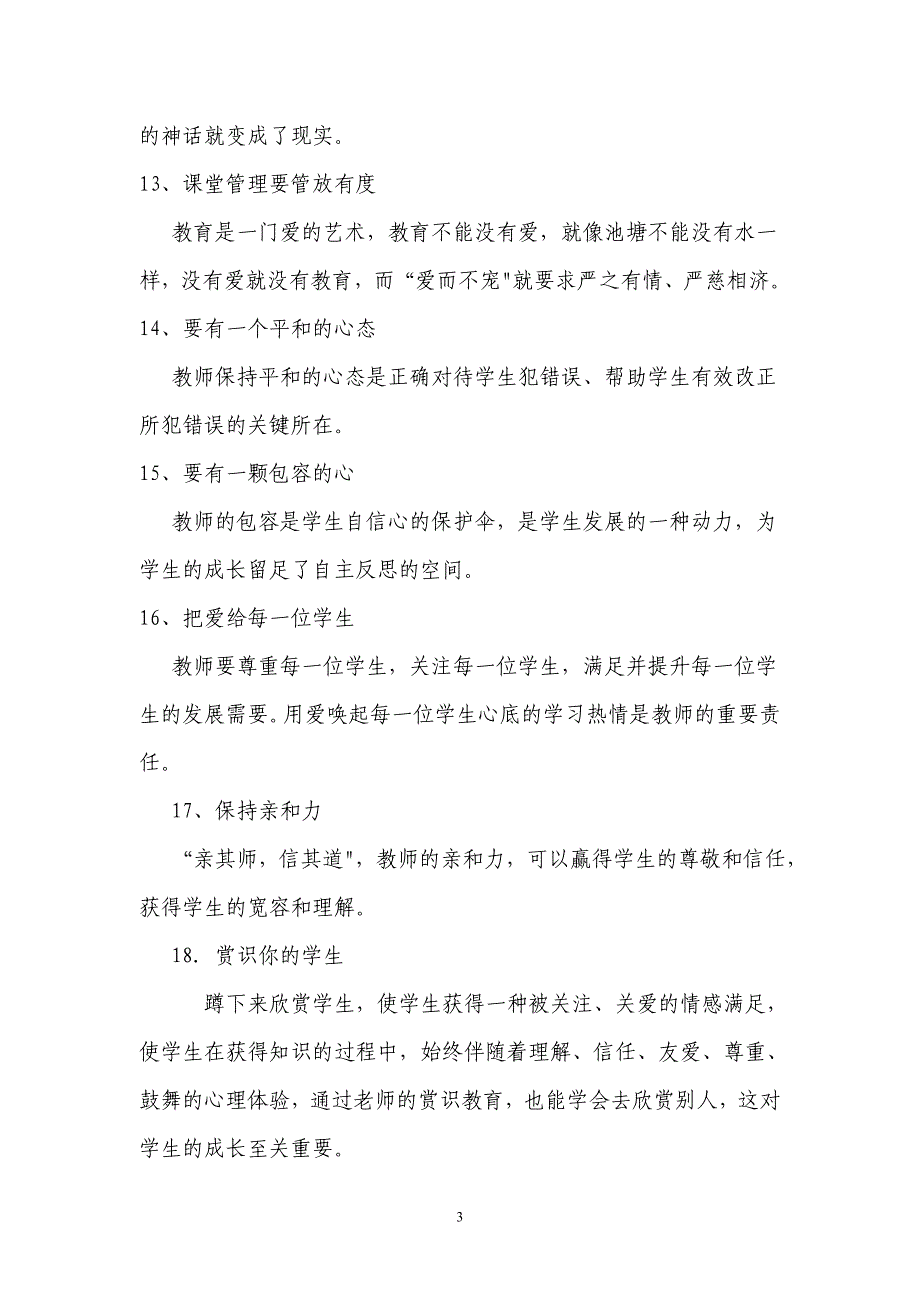 的神话就变成了现实。
13、课堂管理要管放有度
教育是一门爱的艺术，教育不能没有爱，就像池塘不能没有水一
样，没有爱就没有教育，而“爱而不宠"就要求严之有情、严慈相济。
14、要有一个平和的心态
教师保持平和的心态是正确对待学生犯错误、帮助学生有效改正
所犯错误的关键所在。
15、要有一颗包容的心
教师的包容是学生自信心的保护伞，是学生发展的一种动力，为
学生的成长留足了自主反思的空间。
16、把爱给每一位学生
教师要尊重每一位学生，关注每一位学生，满足并提升每一位学
生的发展需要。用爱唤起每一位学生心底的学习热情是教师的重要责
任。
17、保持亲和力
“亲其师，信其道"，教师的亲和力，可以赢得学生的尊敬和信任，
获得学生的宽容和理解。
18. 赏识你的学生
蹲下来欣赏学生，使学生获得一种被关注、关爱的情感满足，
使学生在获得知识的过程中，始终伴随着理解、信任、友爱、尊重、
鼓舞的心理体验，通过老师的赏识教育，也能学会去欣赏别人，这对
学生的成长至关重要。
3